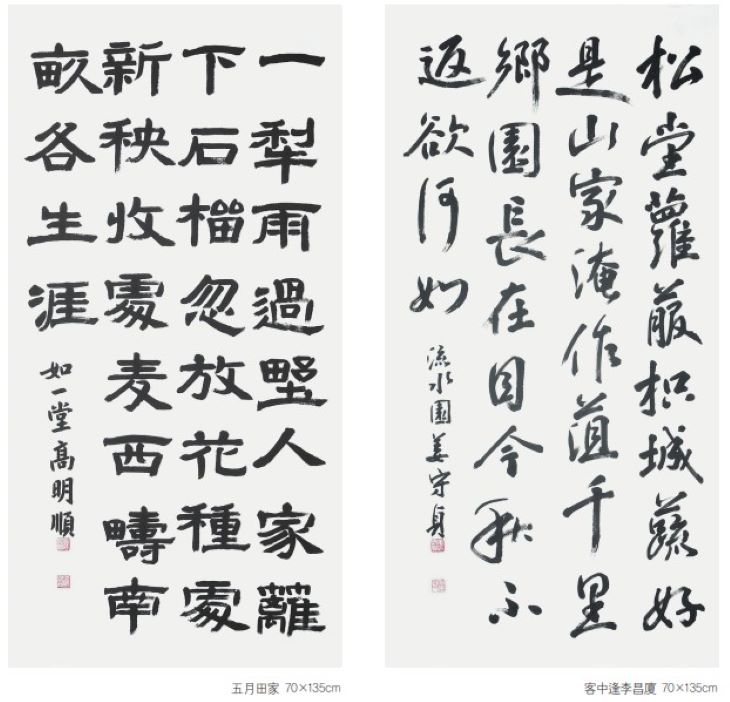 一犁雨過墅人家籬
下石榴忽放花種處
新秧收處麦西疇南
畝各生涯
如一堂高明順
五月田家 70×135cm
松堂蘿菔枳城蔬好
是山家淹作菹千里
鄉園長在目今秋不
返欲何如
流水園姜守貞
客中逢李昌廈 70×135cm